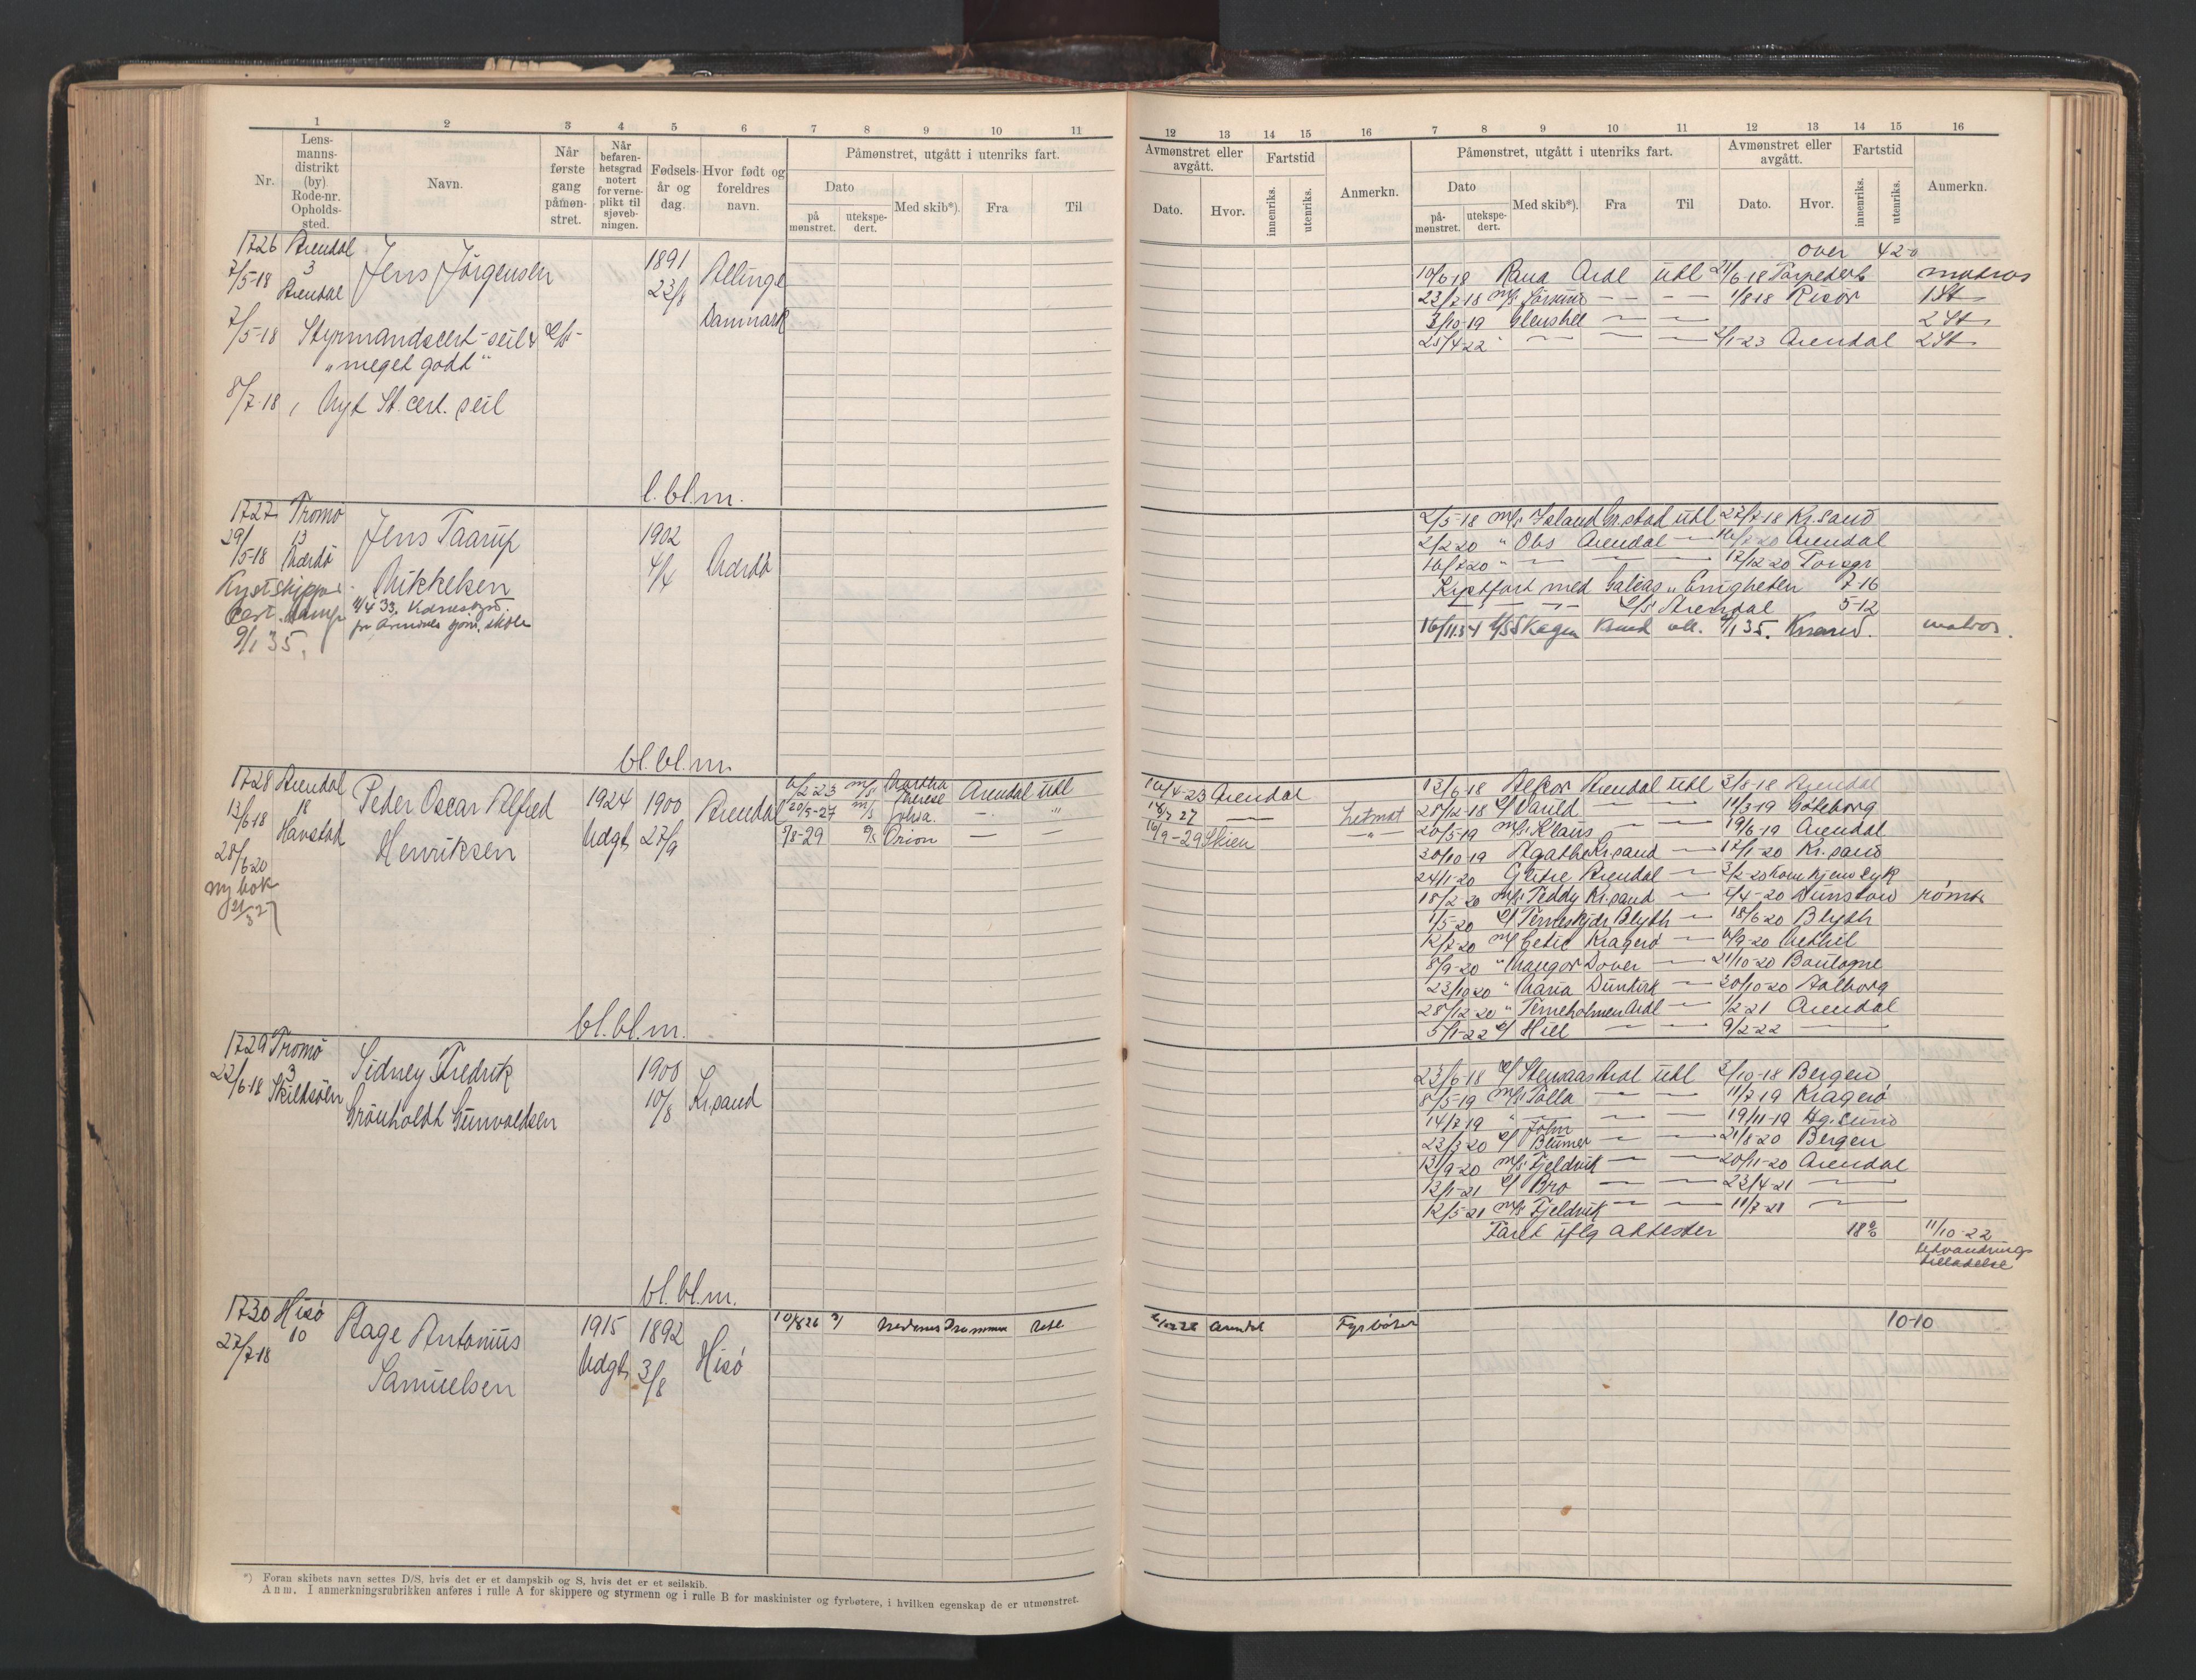 1 2 3 4 5 6 7 8 9 10 11
Nr.
Lens-
manns-
distrikt
(by)
Rode-nr.
Opholds-
sted.
Navn.
Når
første
gang
påmøn-
stret.
Når
befaren-
hetsgrad
notert
for verne-
plikt til
sjøveb-
ningen.
Fødsels-
år og
dag.
Hvor født og
foreldres
navn.
Påmønstret, utgått i utenriks fart.
Dato
på
mønstret.
utekspe-
dert.
Med skib*).
Fra
Til
1726 Arendal
7/5-18 3
Arendal
Jens Jörgensen
1891
23/8
Allinge
Danmark
7/5-18 Styrmandscert-seil
"meget godt"
8/7-18, Nyt St.cert. seil
l. bl. m.
1727 Tromö
29/5-18 13
Mærdö
Jens Taarup
Mikkelsen
1902
4/4
Mærdö
Kystskipper
Cert.
9/1 35.
bl. bl. m.
1728 Arendal
13/6-18 18
Havstad
28/6 20
ny bok
21/3 27
Peder Oscar Alfred
Henriksen
1924
Udgt.
1900
27/9
Arendal
6/2-23 m/s Martha Therese Arendal utl
20/5-27 m/s Sylvia. — "
5/8-29 Orion — —
bl. bl. m.
1729 Tromö
22/6-18 3
Skilsöen
Sidney Fredrik
Grönholdt Gunvaldsen
1900
10/8
Kr.sand
bl. bl. m.
1730 Hisö
27/7-18 10
Aage Antonius
Samuelsen
1915
Udgt.
1892
3/8
Hisö
10/8 26 Nedenes Drammen Utl
*) Foran skibets navn settes D/S, hvis det er et dampskib og S, hvis det er et seilskib.
Anm. I anmerkningsrubrikken anføres i rulle A for skippere og styrmenn og i rulle B for maskinister og fyrbøtere, i hvilken egenskap de er utmønstret.
12 13 14 15 16 7 8 9 10 11 12 13 14 15 16
Avmønstret eller
avgått.
Dato.
Hvor.
Fartstid
innenriks.
utenriks.
Anmerkn.
Påmønstret, utgått i utenriks fart.
Dato
på-
mønstret.
utekspe-
dert.
Med skib*).
Fra
Til
Avmønstret eller
avgått.
Dato.
Hvor.
Fartstid
innenriks.
utenriks.
Anmerkn.
over 42-0
10/6 18 Rana Ardl utl 21/6-18 Torpedert matros
23/7-18 m/s — — 1/8-18 Risör 1 St
3/10-19 Glenshee — — 2 St
25/4-22 — — 2/1-23 Arendal 2 St
2/5-18 m/s Island Gr.stad utl 27/7-18 Kr.sand
2/2 20 " Obs Arendal — Arendal
16/7 20 " — — 17/12-20 Porsgr
Kystfart med Galeas "Enigheten 7-16
— — — Arendal 5-12
16/11 34 Skagen Krsnd utl. 9/1 35. Krsand. matros.
10/4-23 Arendal
18/7 27 — Letmat
16/9-29 Skien — " —
13/6-18 Alkor Arendal utl 3/8-18 Arendal
28/12-18 Varild — — 11/3-19 Göteborg
20/5-19 m/s Klaus — — 19/6-19 Arendal
30/10-19 Agathe Kr.sand — 17/1-20 Kr.sand
24/1-20 Grete Arendal —
18/2-20 m/s Teddy Kr.sand — rømte
1/5-20 Terneskjær Blyth — 18/6-20 Blyth
12/7-20 m/s Kragerö — 6/9-20 Methil
8/9-20 " Mangor Dover — 21/10-20 Boulogne
23/10 20 " Maria Dunkirk — 30/10-20 Aalborg
28/12-20 " Terneholmen Ardl — 1/2-21 Arendal
5/1-22 Hill — — 9/2-22 —
23/6-18 Stenaas Ardl utl 3/10-18 Bergen
8/5-19 m/s Tolla — — 11/7-19 Kragerö
14/7 19 " — — — 19/11-19 Hg.sund
23/3 20 John Blumer — — 21/8-20 Bergen
13/9-20 m/s Fjeldvik — — 20/11-20 Arendal
13/1-21 Bro — — 23/4-21 —
12/5-21 m/s Fjeldvik — — 11/7-21 —
Faret iflg attester 18 11/10-22
Utvandrings
tilladelse
Arendal Fyrbøter 10-10